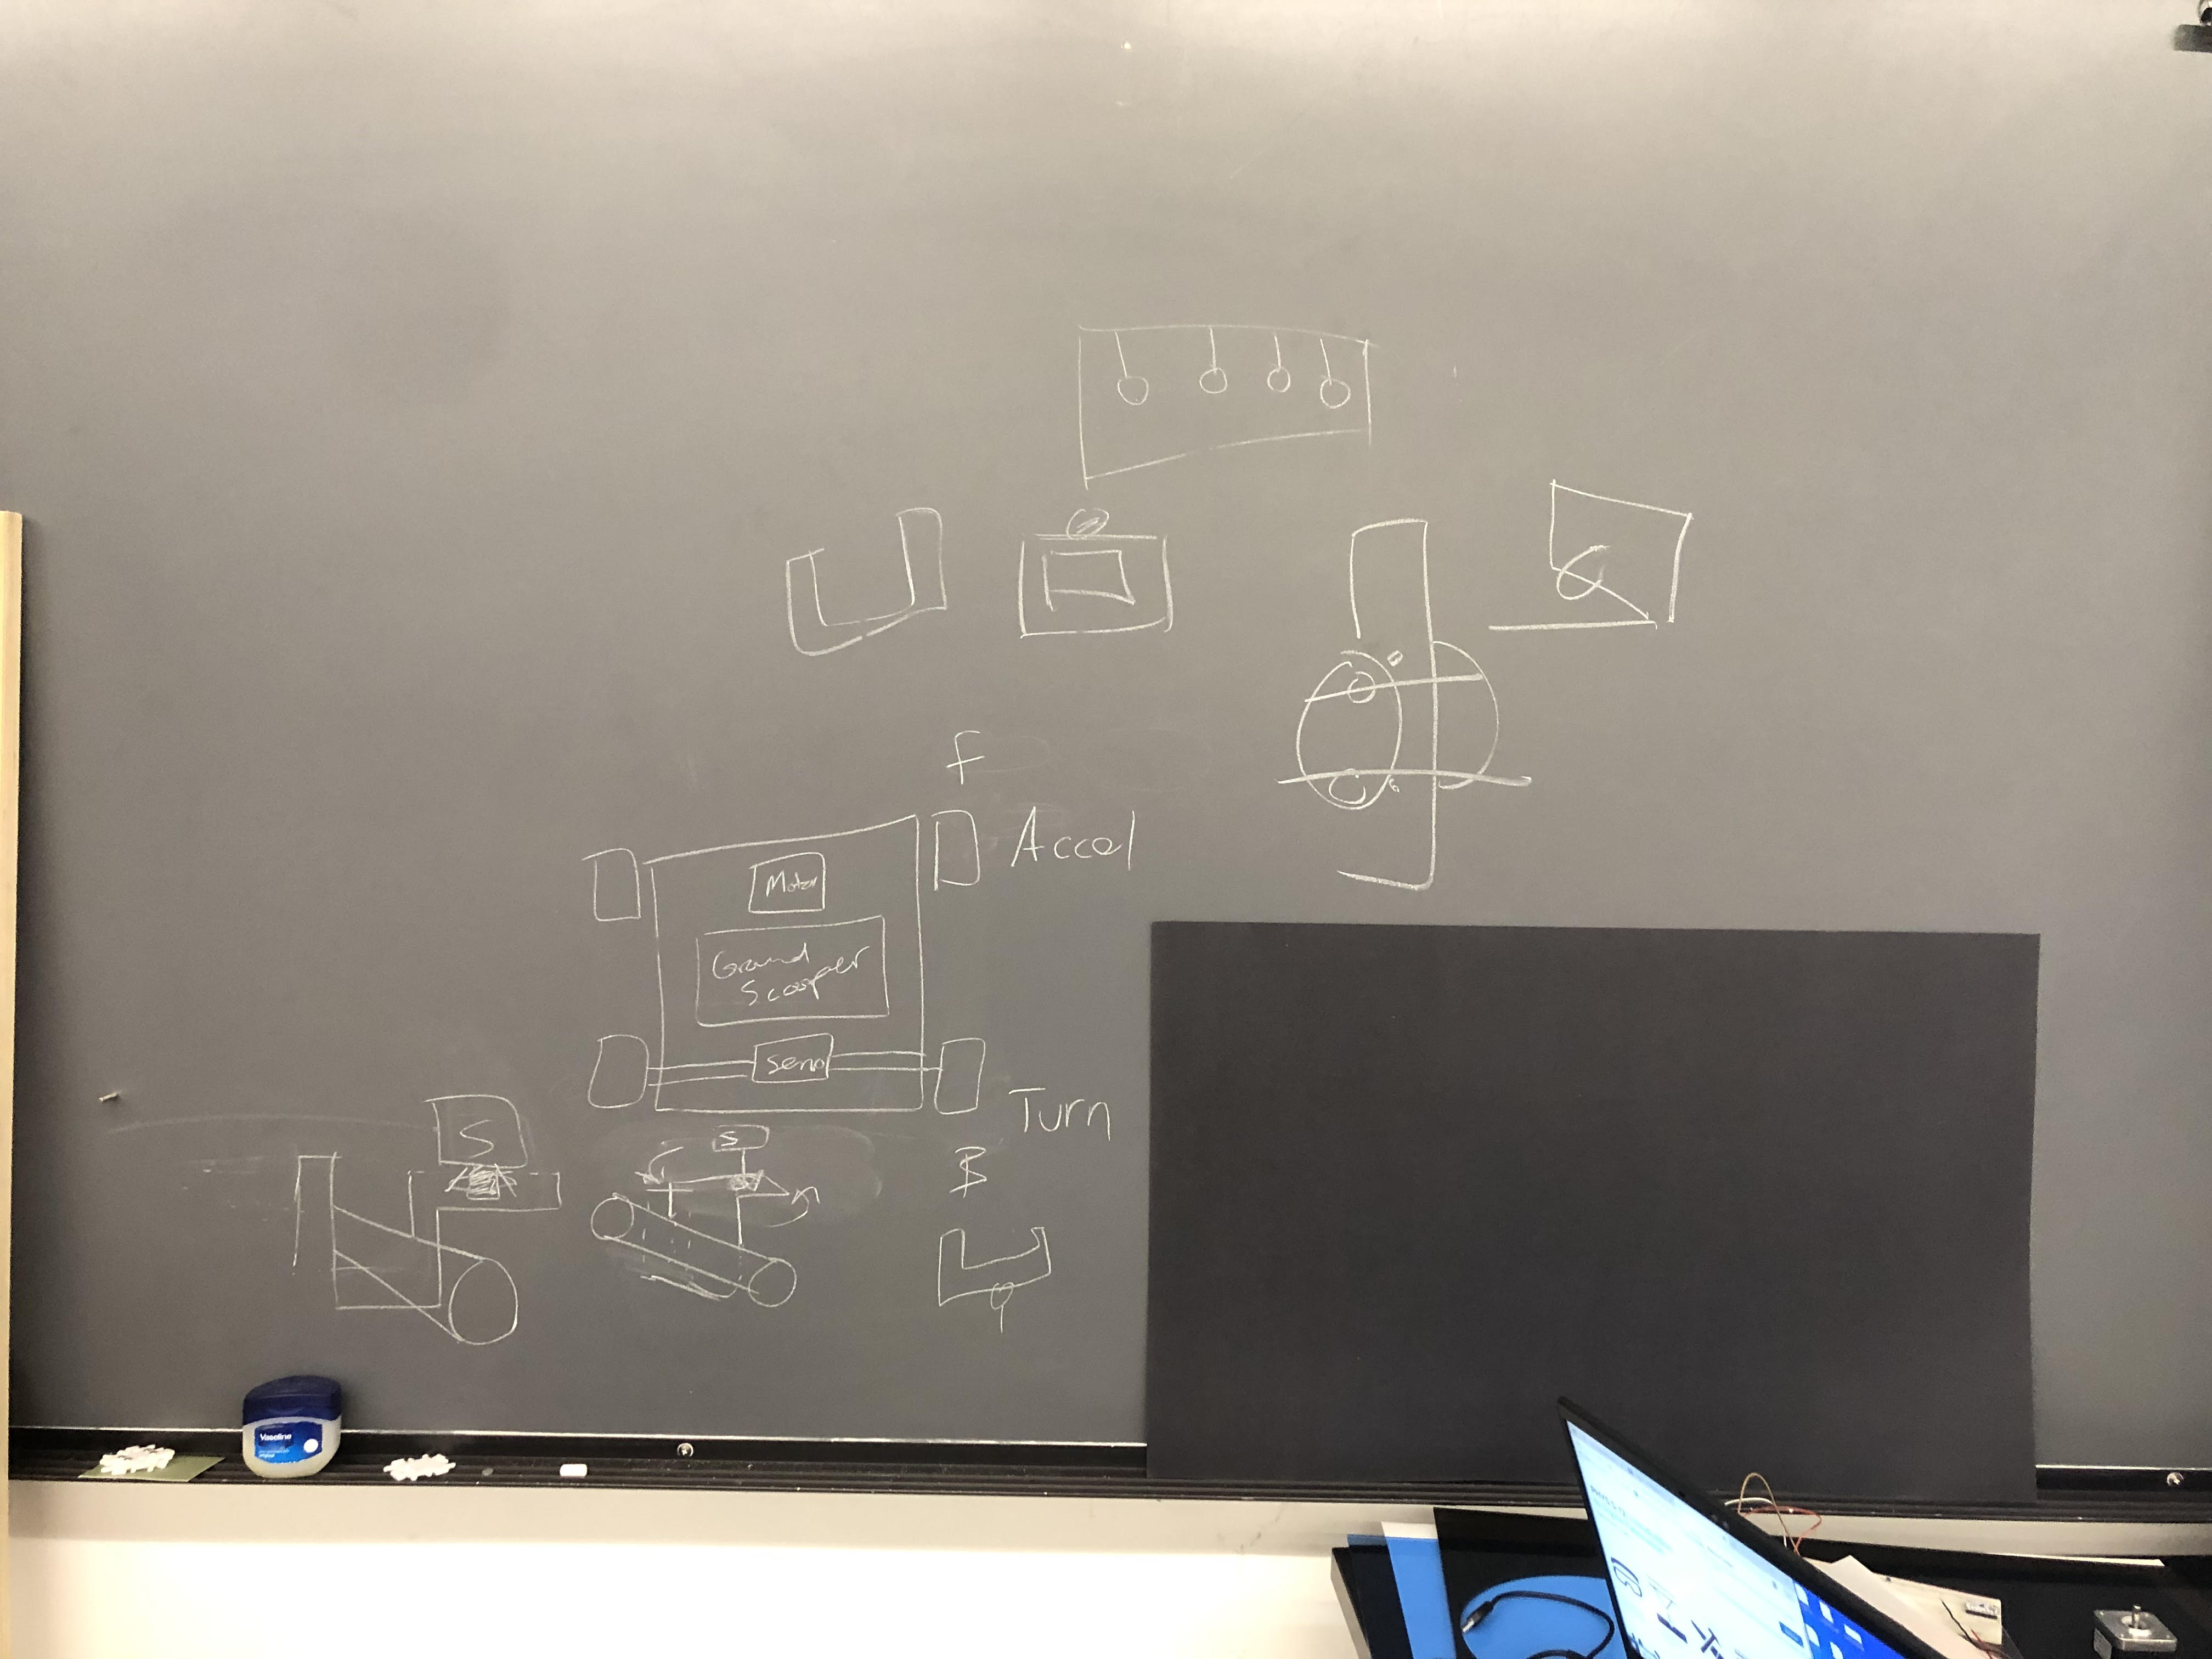 F
Accel
Motor
Ground
Scooper
Servo
Turn
S
S
B
Vaseline